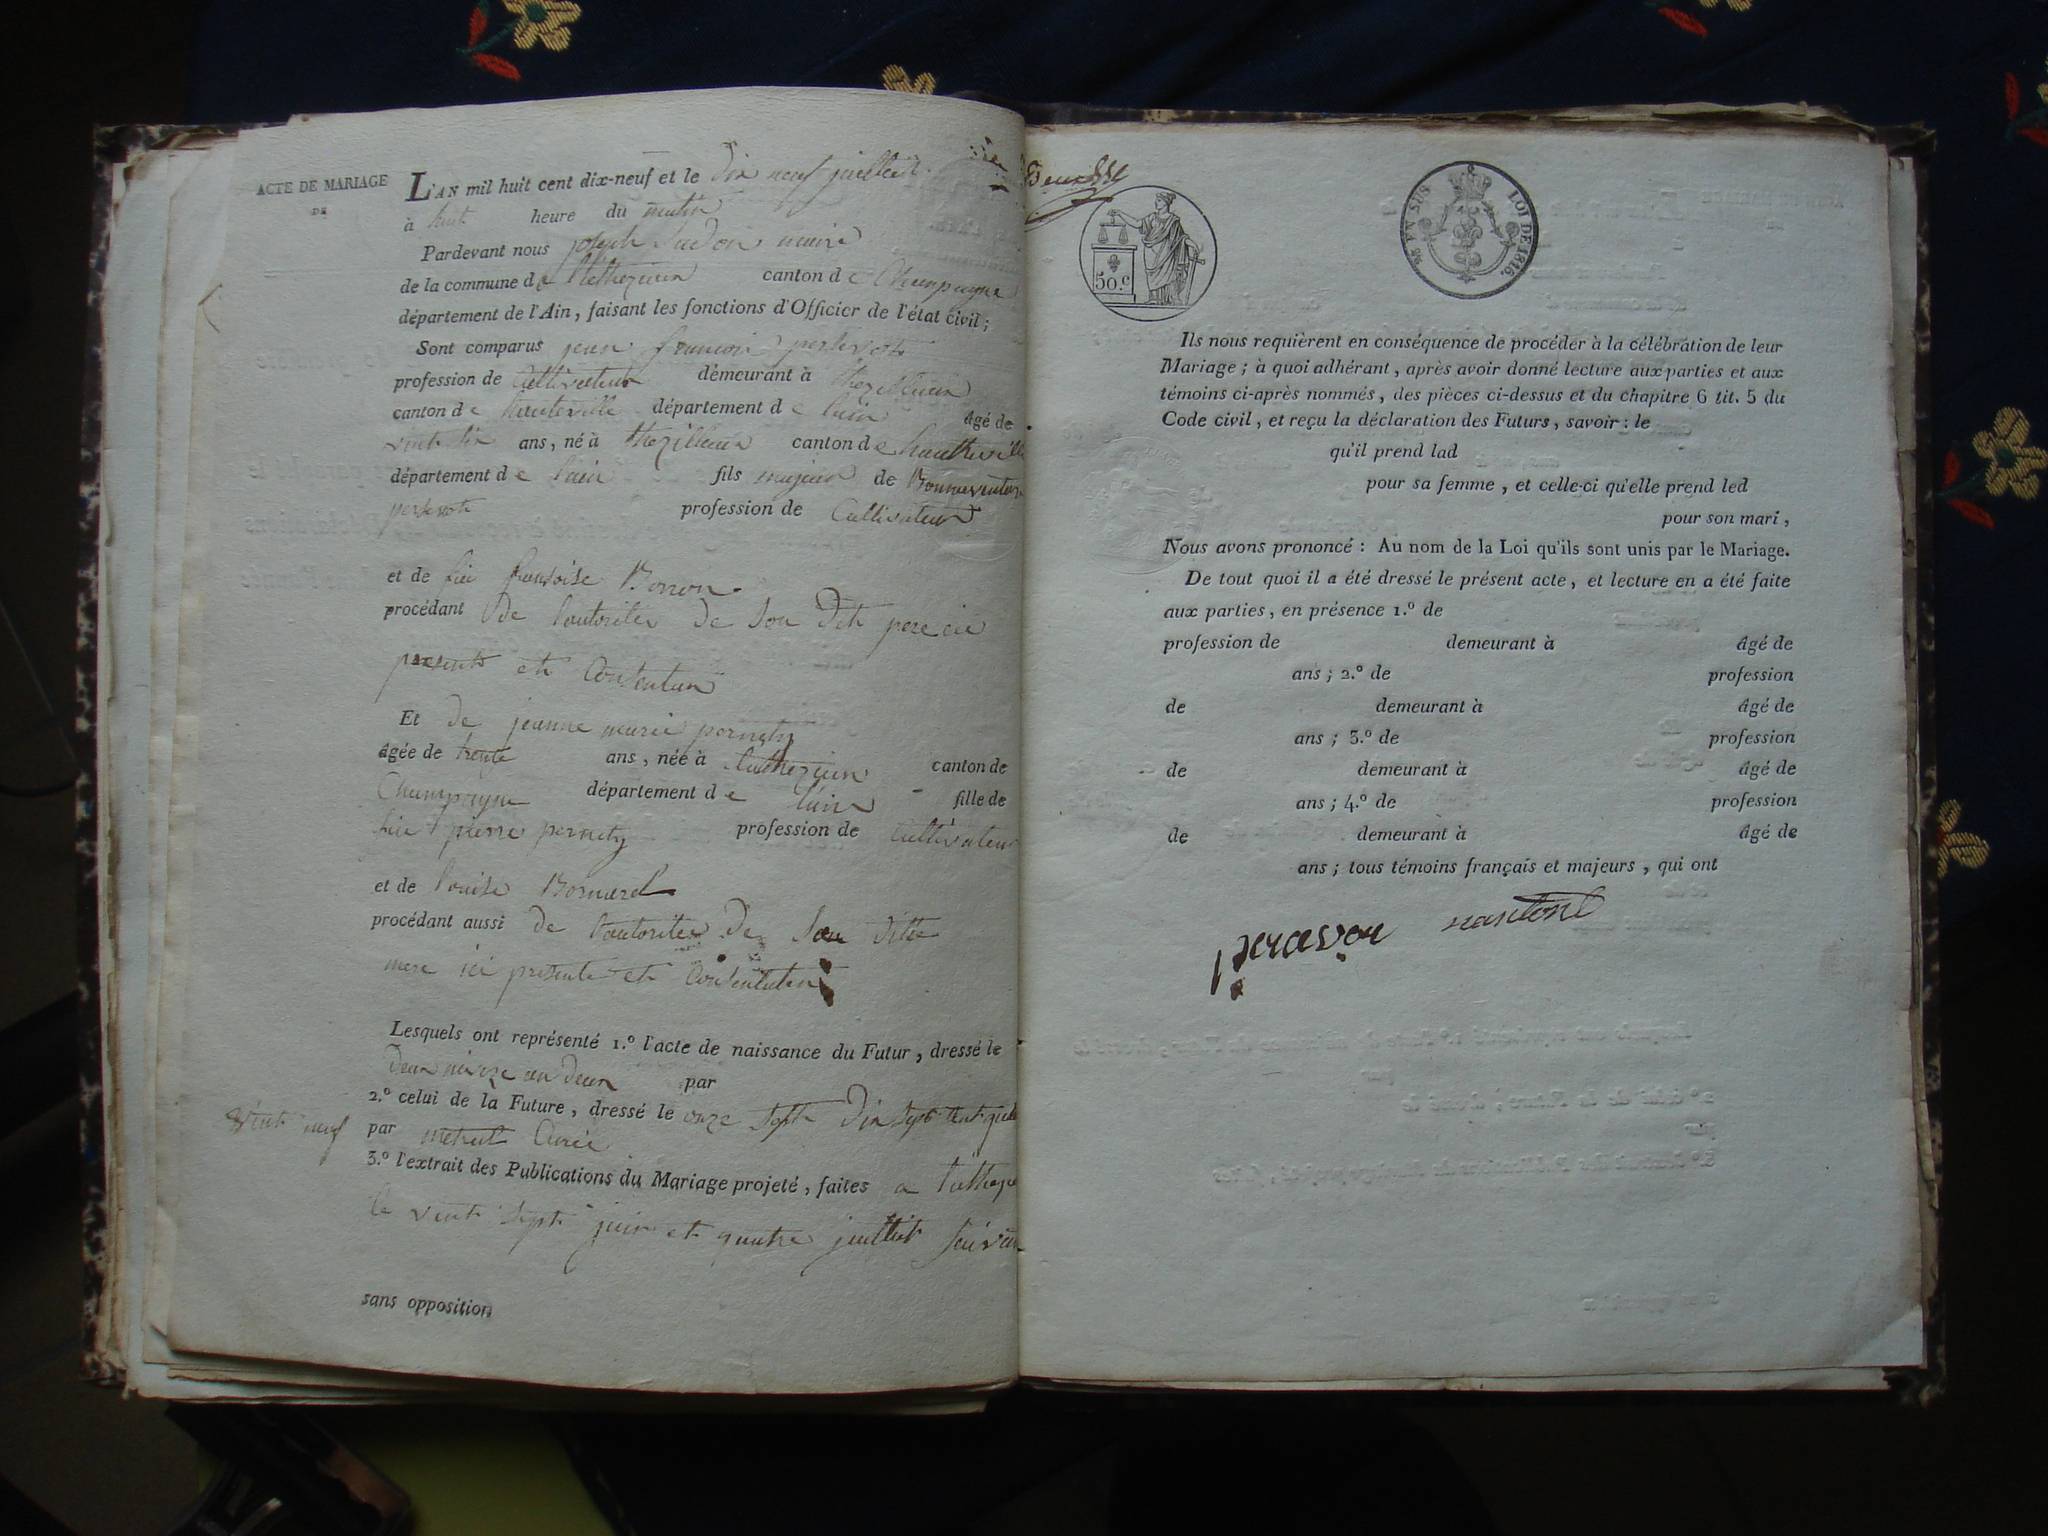 ACTE DE MARIAGE
DE
L'AN mil huit cent dix-neuf et le dix neuf juillet
à huit heure du matin
Pardevant nous joseph maire
de la commune de canton de Champagne
département de l'Ain, faisant les fonctions d'Officier de l'état civil;
Sont comparus jean francois perlerote
profession de Cultivateur démeurant à thezillieux
canton de hauteville département de lain âgé de
vint six ans, né à thezillieux canton de hautteville
département de lain fils majeur de Bonnaventure
profession de Cultivateur
et de feu fransoise Borron
procédant de lautoritée de Son dit pere ici
presente et Consentan
Et de jeanne marie pernety
âgée de trente ans, née à luthezieux canton de
Champagne département de lain fille de
feu pierre pernety profession de Cultivateur
et de louise Bornard
procédant aussi de lautoritée de Sa ditte
mere ici presente et Consentante
Lesquels ont représenté 1.º l'acte de naissance du Futur, dressé le
deux nivose an deux par
2.º celui de la Future, dressé le onze 7bre dix sept cent quatre
vint neuf
par Curée
3.º l'extrait des Publications du Mariage projeté, faites a luthezieu
le vint sept juin et quatre juillet Suivan
sans opposition
50.c
EN SUS LOI DE 1816.
Ils nous requièrent en conséquence de procéder à la célébration de leur
Mariage; à quoi adhérant, après avoir donné lecture aux parties et aux
témoins ci-après nommés, des pièces ci-dessus et du chapitre 6 tit. 5 du
Code civil, et reçu la déclaration des Futurs, savoir: le
qu'il prend lad
pour sa femme, et celle-ci qu'elle prend led
pour son mari,
Nous avons prononcé: Au nom de la Loi qu'ils sont unis par le Mariage.
De tout quoi il a été dressé le présent acte, et lecture en a été faite
aux parties, en présence 1.º de
profession de demeurant à âgé de
ans; 2.º de profession
de demeurant à âgé de
ans; 3.º de profession
de demeurant à âgé de
ans; 4.º de profession
de demeurant à âgé de
ans; tous témoins français et majeurs, qui ont